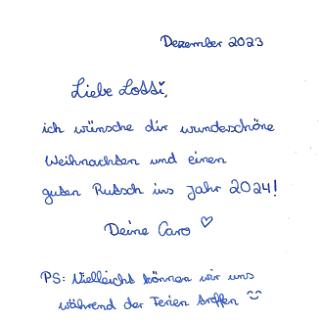 Dezember 2023
Liebe Lotti,
ich wünsche dir wunderschöne
Weihnachten und einen
guten Rutsch ins Jahr 2024!
Deine Caro ♡
PS: Vielleicht können wir uns
während der Ferien treffen ☺